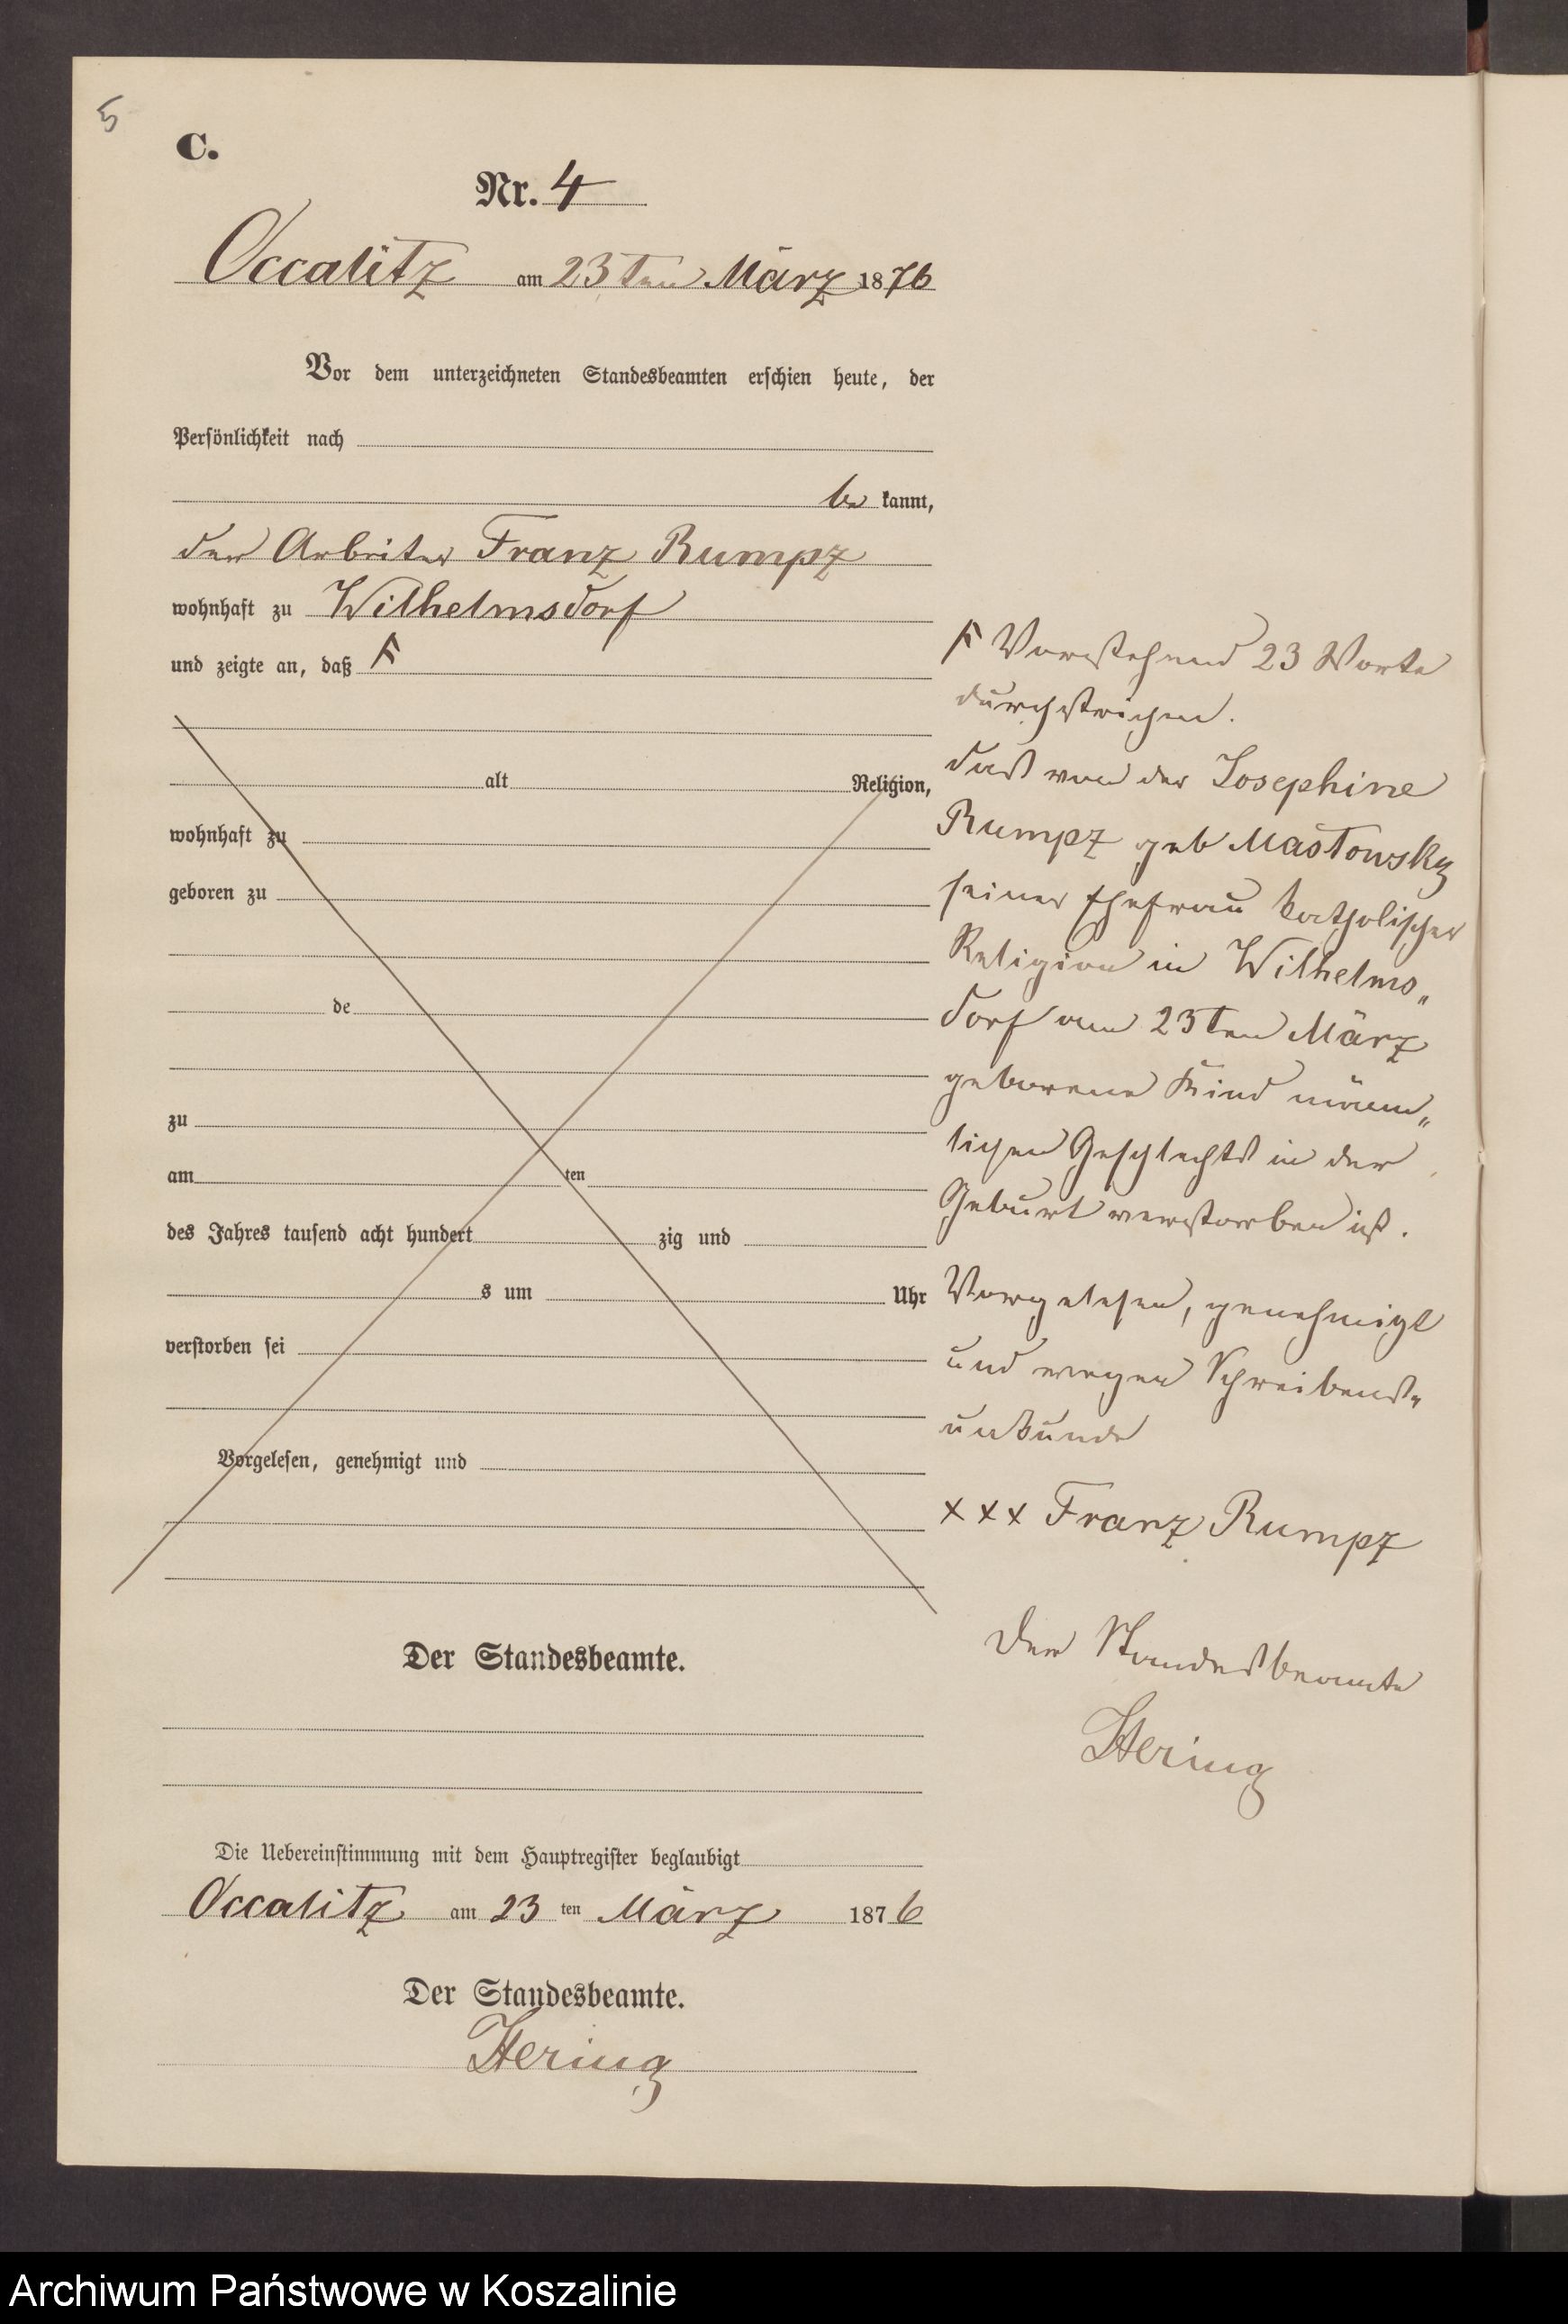 5
C.
Nr. 4
Occalitz am 23ten März 1876
Vor dem unterzeichneten Standesbeamten erschien heute, der
Persönlichkeit nach
be kannt,
der Arbeiter Franz Rumpz
wohnhaft zu Wilhelmsdorf
und zeigte an, daß F
alt Religion,
wohnhaft zu
geboren zu
de
zu
am ten
des Jahres tausend acht hundert zig und
s um Uhr
verstorben sei
Vorgelesen, genehmigt und
Der Standesbeamte.
F Vorstehend 23 Worte
durchstrichen.
daß von der Josephine
Rumpz geb Mastowsky
seiner Ehefrau katholischer
Religion in Wilhelms„
dorf am 23ten März
geborene Kind männ„
lichen Geschlechts in der
Geburt verstorben ist.
Vorgelesen, genehmigt
und wegen Schreibens„
unkunde
xxx Franz Rumpz
Der Standesbeamte
Hering
Die Uebereinstimmung mit dem Hauptregister beglaubigt
Occalitz am 23 ten März 1876
Der Standesbeamte.
Hering
Archiwum Państwowe w Koszalinie